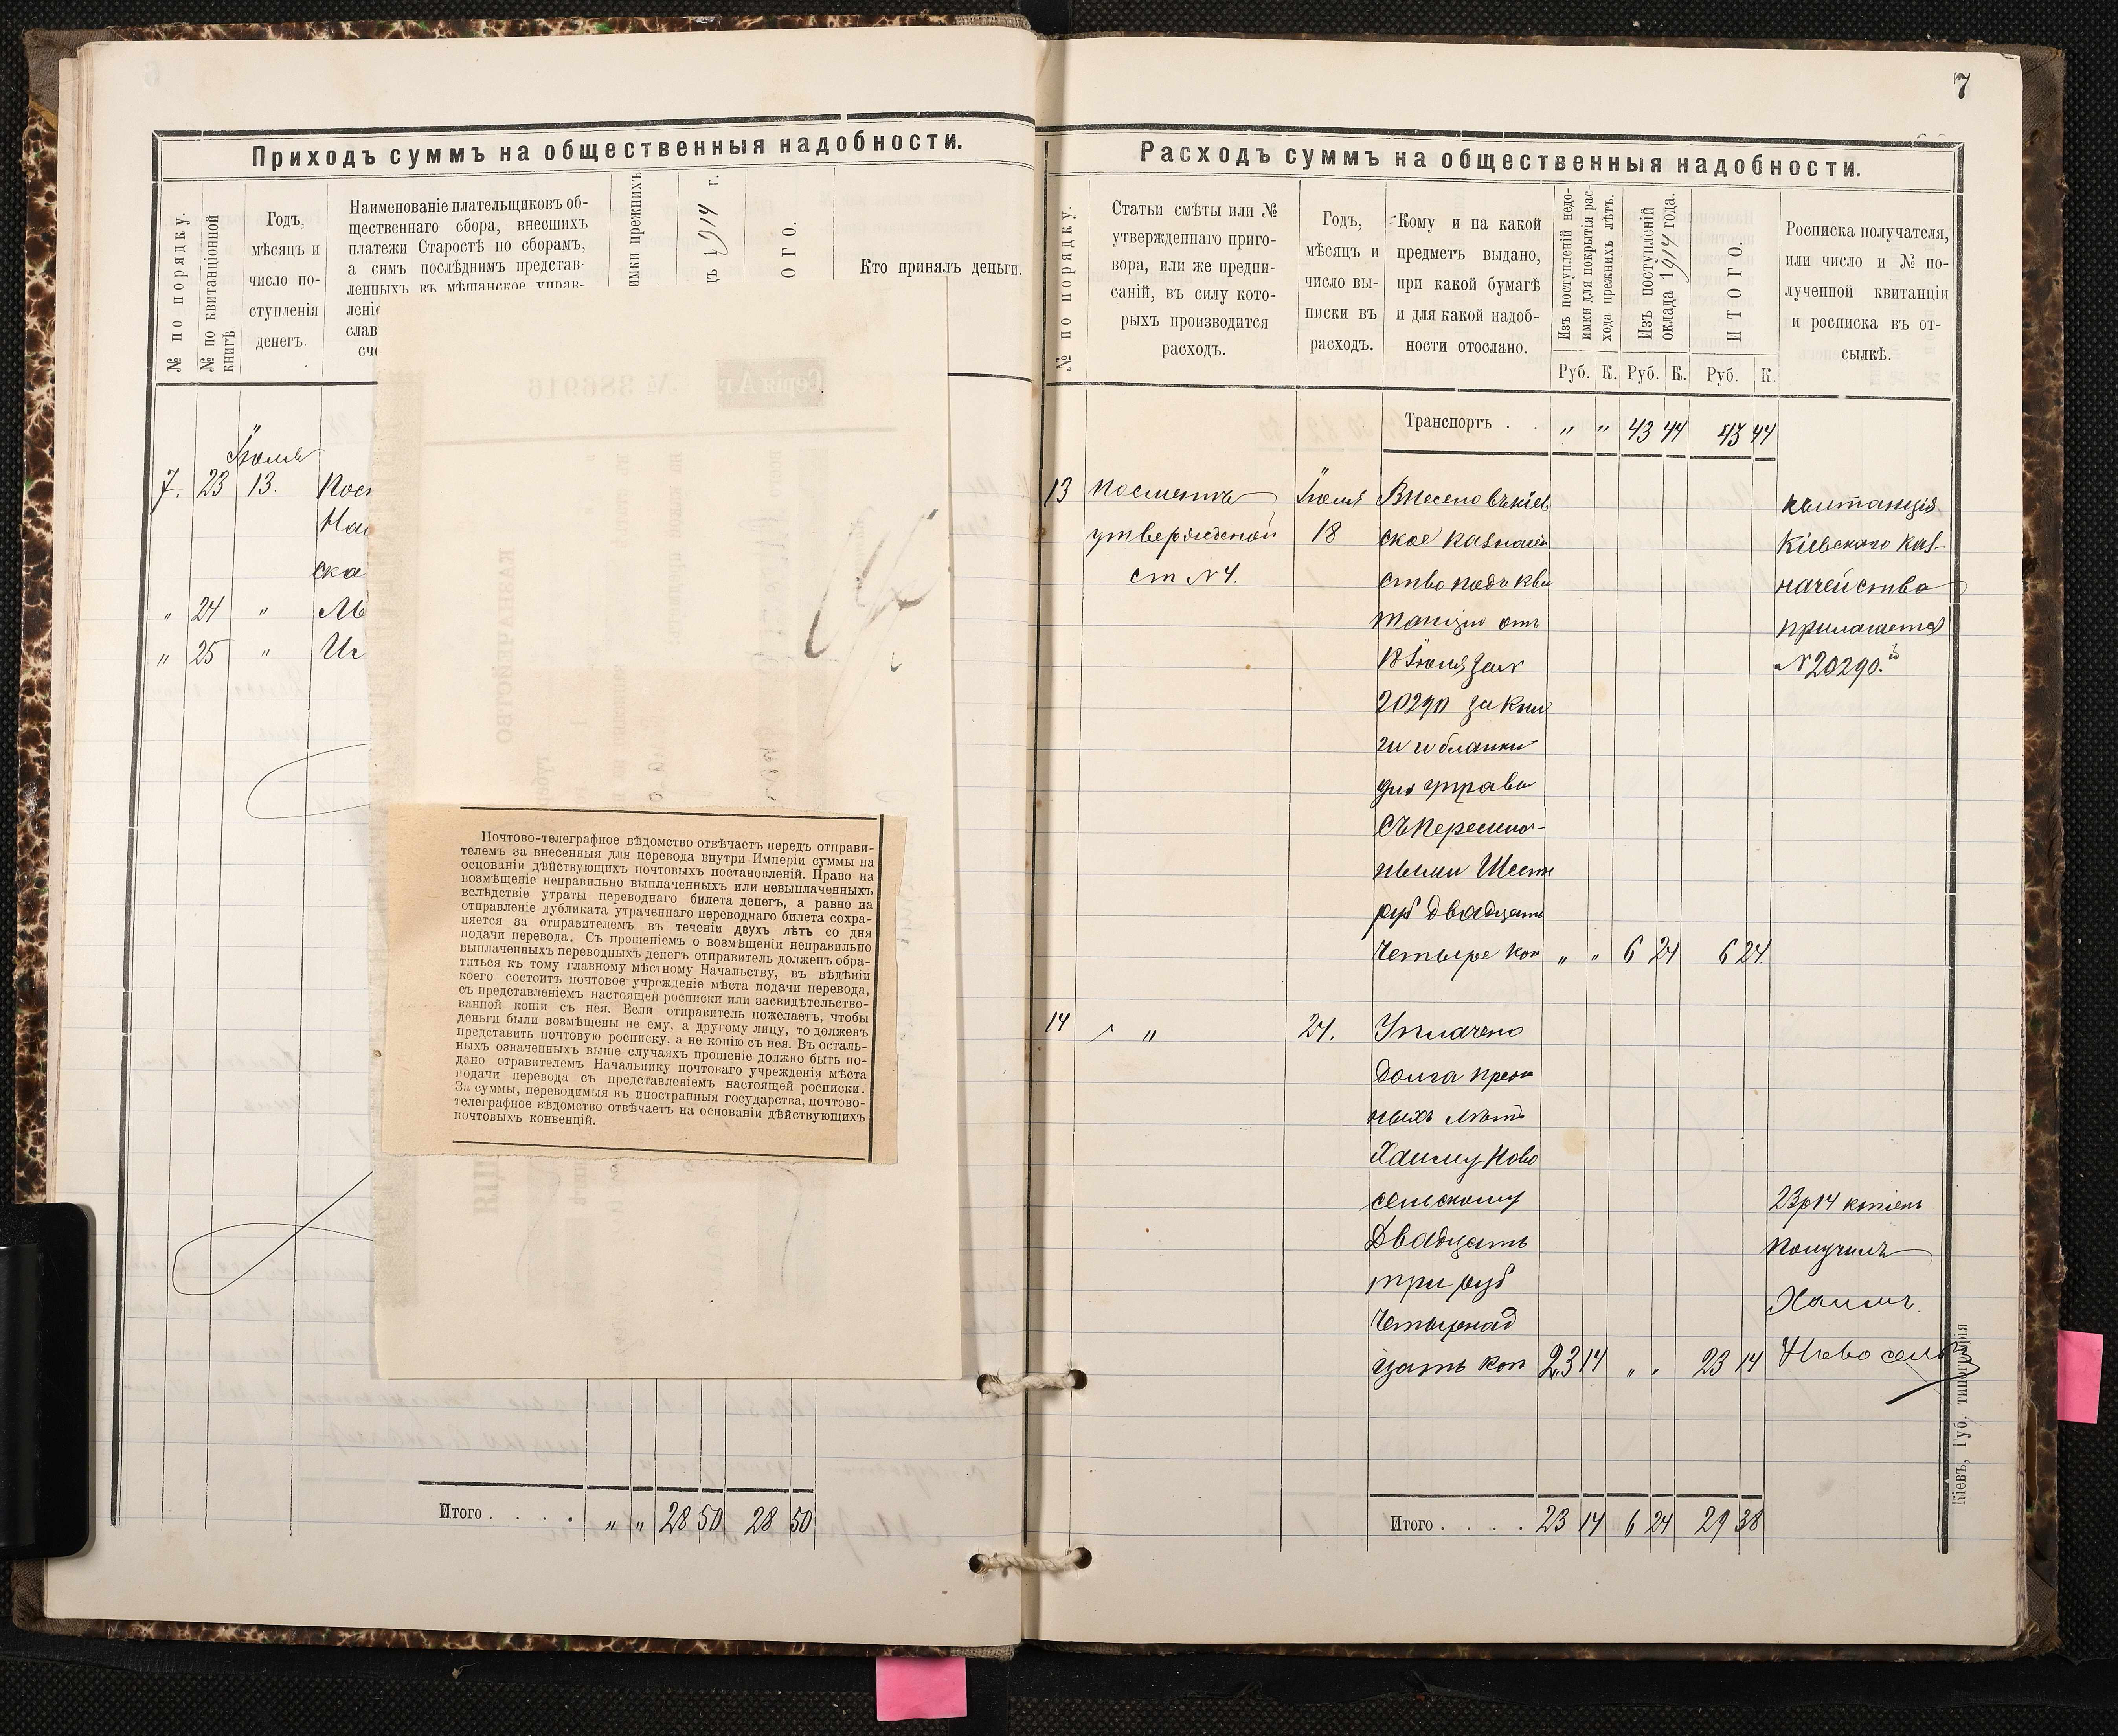 7
Приходъ суммъ на общественныя надобности.
№ по порядку.
№ по квитанціонной
книгѣ
Годъ,
мѣсяцъ и
число по-
ступленія
денегъ.
Наименованіе плательщиковъ об-
щественнаго сбора, внесшихъ
платежи Старостѣ по сборамъ,
а симъ послѣднимъ представ-
ленныхъ въ мѣщанское управ-
леніе
слав
сче
имки прежнихъ
дъ 1914 г.
ОГО.
Кто принялъ деньги.
Іюля
7. 23 13. Пос
На
ска
" 24 " Ль
" 25 " Ис
Серія Аг № 386916
Почтово-телеграфное вѣдомство отвѣчаетъ передъ отправи-
телемъ за внесенныя для перевода внутри Имперіи суммы на
основаніи дѣйствующихъ почтовыхъ постановленій. Право на
возмѣщеніе неправильно выплаченныхъ или невыплаченныхъ
вслѣдствіе утраты переводнаго билета денегъ, а равно на
отправленіе дубликата утраченнаго переводнаго билета сохра-
няется за отправителемъ въ теченіи двухъ лѣтъ со дня
подачи перевода. Съ прошеніемъ о возмѣщеніи неправильно
выплаченныхъ переводныхъ денегъ отправитель долженъ обра-
титься къ тому главному мѣстному Начальству, въ вѣдѣніи
коего состоитъ почтовое учрежденіе мѣста подачи перевода,
съ представленіемъ настоящей росписки или засвидѣтельство-
ванной копіи съ нея. Если отправитель пожелаетъ, чтобы
деньги были возмѣщены не ему, а другому лицу, то долженъ
представить почтовую росписку, а не копію съ нея. Въ осталь-
ныхъ означенныхъ выше случаяхъ прошеніе должно быть по-
дано отравителемъ Начальнику почтоваго учрежденія мѣста
подачи перевода съ представленіемъ настоящей росписки.
За суммы, переводимыя въ иностранныя государства, почтово-
телеграфное вѣдомство отвѣчаетъ на основаніи дѣйствующихъ
почтовыхъ конвенцій.
Итого . . . . " " 28 50 28 50
Расходъ суммъ на общественныя надобности.
№ по порядку.
Статьи смѣты или №
утвержденнаго приго-
вора, или же предпи-
саній, въ силу кото-
рыхъ производится
расходъ.
Годъ,
мѣсяцъ и
число вы-
писки въ
расходъ.
Кому и на какой
предметъ выдано,
при какой бумагѣ
и для какой надоб-
ности отослано.
Изъ поступленій недо-
имки для покрытія рас-
хода прежнихъ лѣтъ.
Изъ поступленій
оклада 1914 года.
ИТОГО.
Росписка получателя,
или число и № по-
лученной квитанціи
и росписка въ от-
сылкѣ.
Руб. К. Руб. К. Руб. К.
Транспортъ . . " " 43 44 43 44
13 По смѣтъ Іюля Внесено въ кіев
утвержденой 18 ское казначей
ст № 4. ство подъ кви
танцію отъ
18 Іюля за №
20290 за кни
ги и бланки
для управы
съ пересыло
ными Шесть
руб двадцать
Четыре коп " " 6 24 6 24.
квитанція
Кіевскаго Каз-
начейства
прилагается
№ 20290.
14 " " 24. Уплачено
Долга преж
нихъ лѣтъ
Хаиму Ново
сельскому
Двадцать
три руб
Четырнад
цать коп 23 14 " " 23 14
23р 14 копіекъ
Получилъ
Хаимъ
Новосель
Итого . . . . 23 14 6 24 29 38
Кіевъ, Губ. типографія